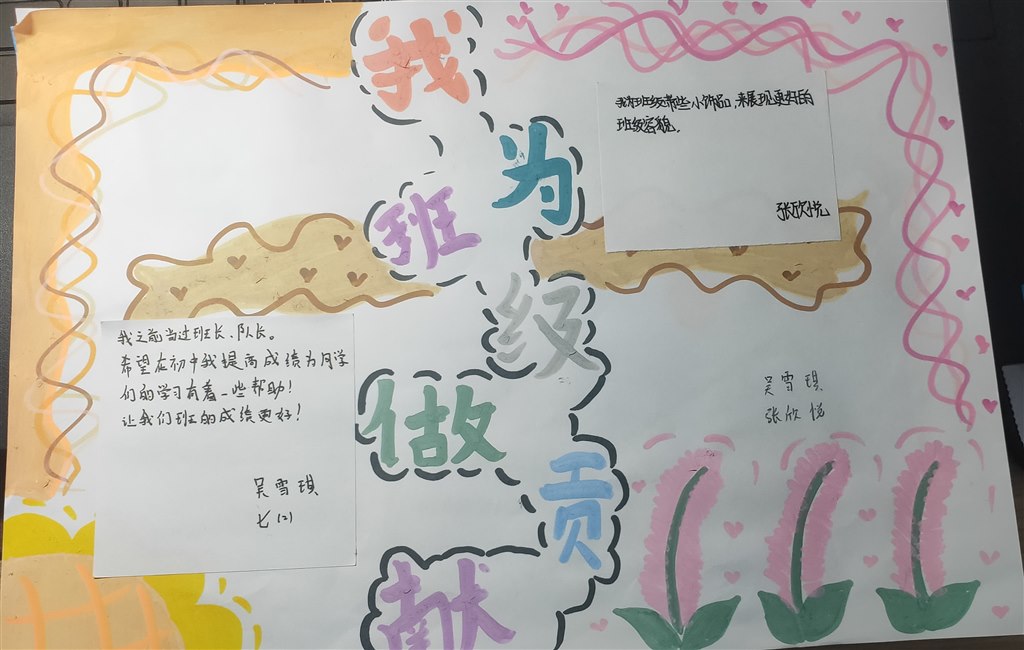 我为班级做贡献
我为班级带些小饰品,来展现更好的
班级容貌.
张欣悦
我之前当过班长、队长。
希望在初中我提高成绩为同学
们的学习有着一些帮助!
让我们班的成绩更好!
吴雪琪
七(2)
吴雪琪
张欣悦